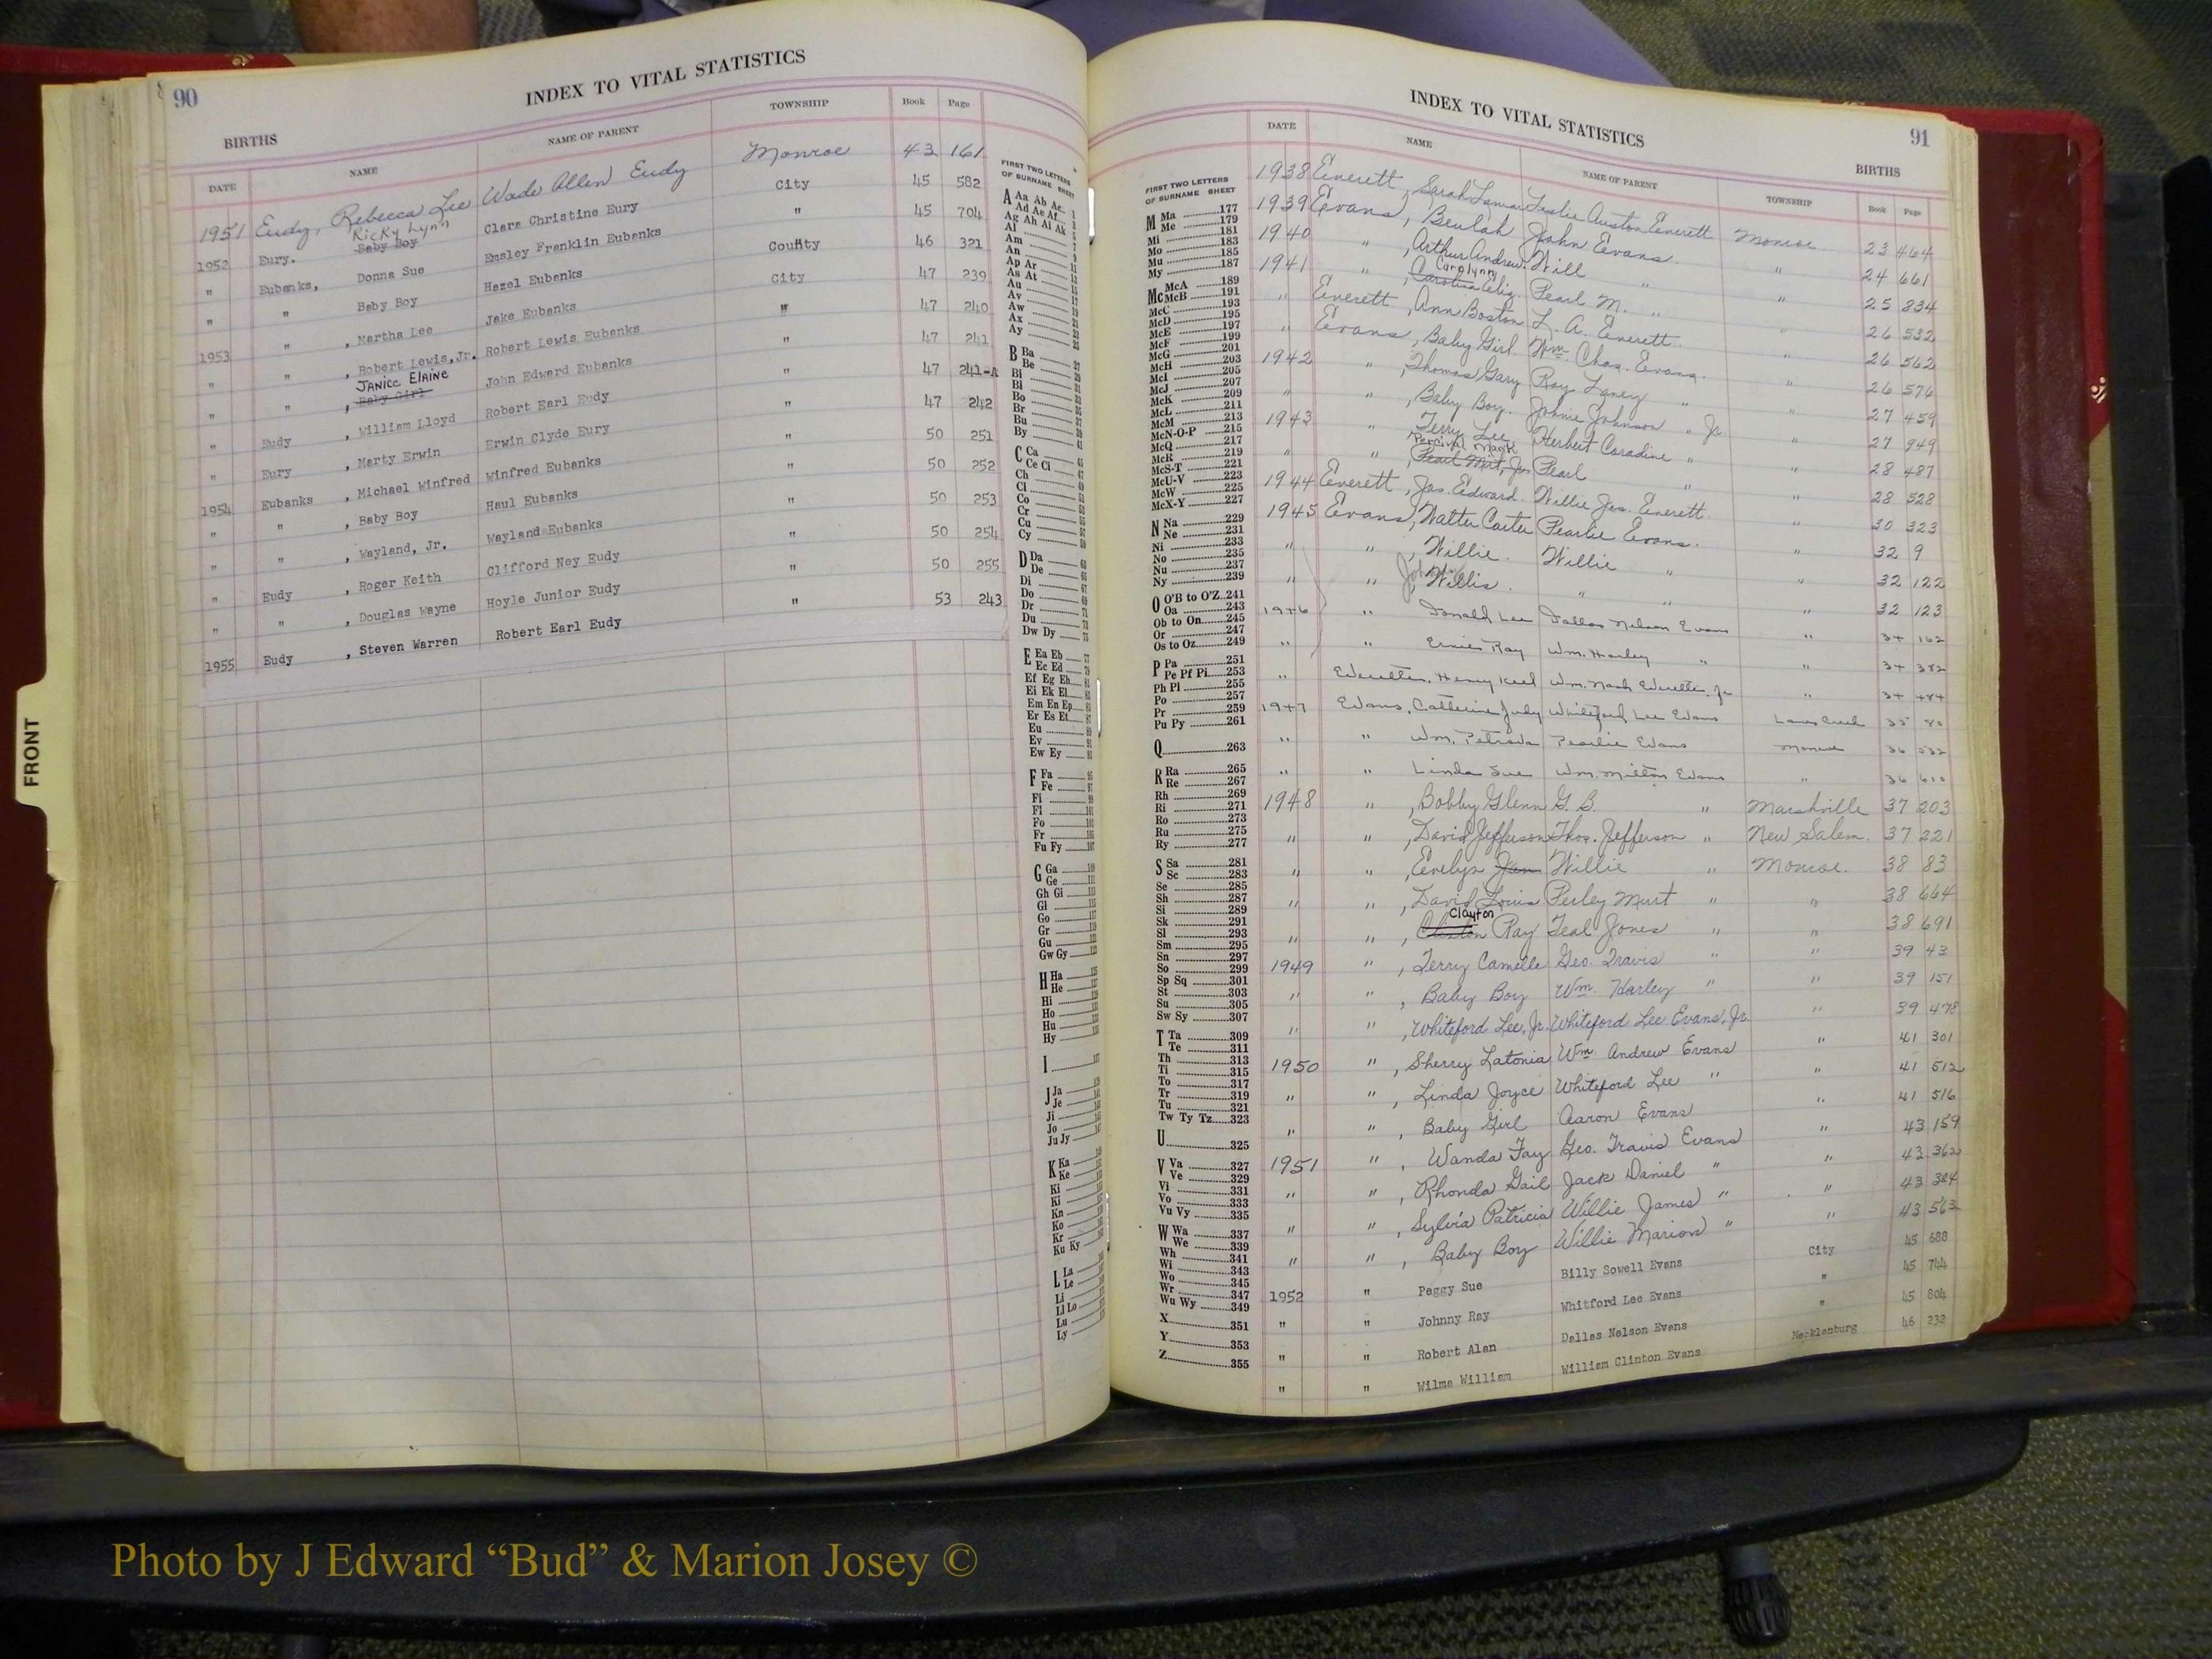 90
INDEX TO VITAL STATISTICS
BIRTHS
DATE NAME NAME OF PARENT TOWNSHIP Book Page
1951 Eudy, Rebecca Lee Wade Allen Eudy Monroe 43 161
Ricky Lynn
1952 Eury. Baby Boy Clara Christine Eury City 45 582
" Eubanks, Donna Sue Emsley Franklin Eubanks " 45 704
" " Baby Boy Hazel Eubanks County 46 321
1953 " , Martha Lee Jake Eubanks City 47 239
" " , Robert Lewis, Jr. Robert Lewis Eubanks " 47 240
JANICE ELAINE
" " , Baby Girl John Edward Eubanks " 47 241
" Eudy , William Lloyd Robert Earl Eudy " 47 241-A
" Eury , Marty Erwin Erwin Clyde Eury " 47 242
1954 Eubanks , Michael Winfred Winfred Eubanks " 50 251
" " , Baby Boy Haul Eubanks " 50 252
" " , Wayland, Jr. Wayland Eubanks " 50 253
" Eudy , Roger Keith Clifford Ney Eudy " 50 254
" " , Douglas Wayne Hoyle Junior Eudy " 50 255
1955 Eudy , Steven Warren Robert Earl Eudy " 53 243
FIRST TWO LETTERS
OF SURNAME SHEET
A Aa Ab Ac
Ad Ae Af
Ag Ah Ai Ak
Al
Am
An
Ap Ar
As At
Au
Av
Aw
Ax
Ay
B Ba
Be
Bi
Bl
Bo
Br
Bu
By
C Ca
Ce Ci
Ch
Cl
Co
Cr
Cu
Cy
D Da
De
Di
Do
Dr
Du
Dw Dy
E Ea Eb
Ec Ed
Ef Eg Eh
Ei Ek El
Em En Ep
Er Es Et
Eu
Ev
Ew Ey
F Fa
Fe
Fi
Fl
Fo
Fr
Fu Fy
G Ga
Ge
Gh Gi
Gl
Go
Gr
Gu
Gw Gy
H Ha
He
Hi
Ho
Hu
Hy
I
J Ja
Je
Ji
Jo
Ju Jy
K Ka
Ke
Ki
Kl
Kn
Ko
Kr
Ku Ky
L La
Le
Li
Ll Lo
Lu
Ly
FRONT
INDEX TO VITAL STATISTICS
91
BIRTHS
DATE NAME NAME OF PARENT TOWNSHIP Book Page
1938 Everett, Sarah Lamar Leslie Auston Everett Monroe 23 464
1939 Evans, Beulah John Evans. " 24 661
1940 " , Arthur Andrew Will " " 25 834
Carolynn
1941 " , Carolina Eliz. Pearl M. " " 26 532
" Everett, Ann Boston L. A. Everett. " 26 562
" Evans, Baby Girl. Wm. Chas. Evans. " 26 576
1942 " , Thomas Gary Roy Laney " " 27 459
" " , Baby Boy. Johnie Johnson " Jr. " 27 949
1943 " , Terry Lee Herbert Coradine " " 28 487
Percival Mack
" " , Pearl Mirt, Jr. Pearl " " 28 528
1944 Everett, Jas. Edward. Willie Jas. Everett. " 30 323
1945 Evans, Walter Carter Pearlie Evans. " 32 9
" " , Willie. Willie " " 32 122
" " , Willis. " " " 32 123
1946 " Donald Lee Dallas Nelson Evans " 34 162
" " Ernie Ray Wm. Harley " " 34 382
" Everette, Henry Keel Wm. Nash Everette, Jr " 34 484
1947 Evans, Catherine Judy Whiteford Lee Evans Lanes Creek 35 80
" " Wm. Pearlie Evans Monroe 36 532
" " Linda Sue Wm. Milton Evans " 36 610
1948 " , Bobby Glenn G. B. " Marshville 37 203
" " , David Jefferson Thos. Jefferson " New Salem. 37 221
" " , Evelyn Jan Willie " Monroe. 38 83
" " , David Louis Perley Murt " " 38 664
Clayton
" " , Clinton Ray Teal Jones " " 38 691
1949 " , Terry Camelle Geo. Travis " " 39 43
" " , Baby Boy Wm. Harley " " 39 151
" " , Whiteford Lee, Jr. Whiteford Lee Evans, Jr. " 39 478
1950 " , Sherry Latonia Wm. Andrew Evans " 41 301
" " , Linda Joyce Whiteford Lee " " 41 512
" " , Baby Girl Aaron Evans " 41 516
1951 " , Wanda Fay Geo. Travis Evans " 43 159
" " , Rhonda Gail Jack Daniel " " 43 362
" " , Sylvia Patricia Willie James " " 43 384
" " , Baby Boy Willie Marion " " 43 563
1952 " Peggy Sue Billy Sowell Evans City 45 688
" " Johnny Ray Whitford Lee Evans " 45 744
" " Robert Alan Dallas Nelson Evans " 45 804
" " Wilma William William Clinton Evans Mecklenburg 46 232
FIRST TWO LETTERS
OF SURNAME SHEET
M Ma 177
Me 179
Mi 181
Mo 183
Mu 185
My 187
Mc McA 189
McB 191
McC 193
McD 195
McE 197
McF 199
McG 201
McH 203
McI 205
McJ 207
McK 209
McL 211
McM 213
McN-O-P 215
McQ 217
McR 219
McS-T 221
McU-V 223
McW 225
McX-Y 227
N Na 229
Ne 231
Ni 233
No 235
Nu 237
Ny 239
O O'B to O'Z 241
Oa 243
Ob to On 245
Or 247
Os to Oz 249
P Pa 251
Pe Pf Pi 253
Ph Pl 255
Po 257
Pr 259
Pu Py 261
Q 263
R Ra 265
Re 267
Rh 269
Ri 271
Ro 273
Ru 275
Ry 277
S Sa 281
Sc 283
Se 285
Sh 287
Si 289
Sk 291
Sl 293
Sm 295
Sn 297
So 299
Sp Sq 301
St 303
Su 305
Sw Sy 307
T Ta 309
Te 311
Th 313
Ti 315
To 317
Tr 319
Tu 321
Tw Ty Tz 323
U 325
V Va 327
Ve 329
Vi 331
Vo 333
Vu Vy 335
W Wa 337
We 339
Wh 341
Wi 343
Wo 345
Wr 347
Wu Wy 349
X 351
Y 353
Z 355
Photo by J Edward “Bud” & Marion Josey ©